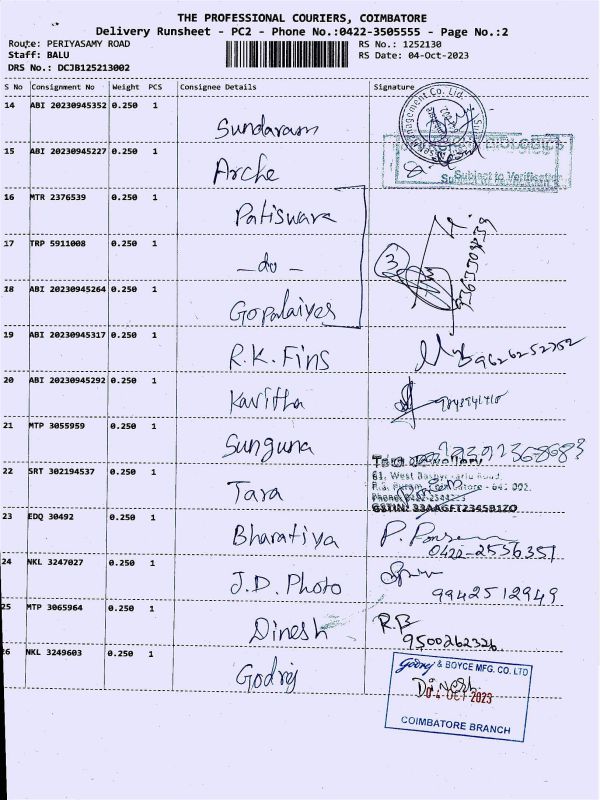 THE PROFESSIONAL COURIERS, COIMBATORE
Delivery Runsheet - PC2 - Phone No.:0422-3505555 - Page No.:2
Route: PERIYASAMY ROAD
RS No.: 1252130
Staff: BALU
RS Date: 04-Oct-2023
DRS No.: DCJB125213002
S No Consignment No Weight PCS Consignee Details Signature
14 ABI 20230945352 0.250 1 Sundaram
15 ABI 20230945227 0.250 1 Arche
Subject to Verification
16 MTR 2376539 0.250 1 Patiswara
17 TRP 5911008 0.250 1 - do - 3
18 ABI 20230945264 0.250 1 Gopalaiyes
19 ABI 20230945317 0.250 1 R.K. Fins 9626252752
20 ABI 20230945292 0.250 1 Kavitha
21 MTP 3055959 0.250 1 Sunguna
22 SRT 302194537 0.250 1 Tara
GSTIN: 33AAGFT2345B1ZO
23 EDQ 30492 0.250 1 Bharatiya P. Ponsen
0422-2536351
24 NKL 3247027 0.250 1 J.D. Photo
9942512949
25 MTP 3065964 0.250 1 Dinesh R.B
9500262326
26 NKL 3249603 0.250 1 Godrej
Godrej & BOYCE MFG. CO. LTD
Dinesh
04 OCT 2023
COIMBATORE BRANCH